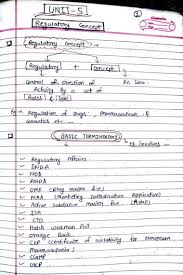 UNIT-5
Regulatory Concept
①
Regulatory Concept :-
Regulatory + Concept
control or direction of An idea
Activity by a set of
Rules & law
Eg - Regulation of drugs, pharmaceutical, &
cosmetics etc.
BASIC TERMINOLOGY
It involves -
Regulatory Affairs
INDA
NDA
ANDA
DMF (Drug master file)
MAA (Marketing Authorization Application)
Active substance Master file (ASMF)
ICH
CTD
Hatch waxman Act
orange Book
CEP (Certificate of suitability for european
Pharmacopoeia)
CMC